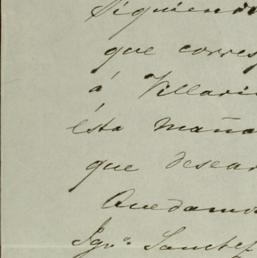 Siguiendo
que corres
á Villari
ésta maña
que desear
Quedamo
Sgnº Sanchez